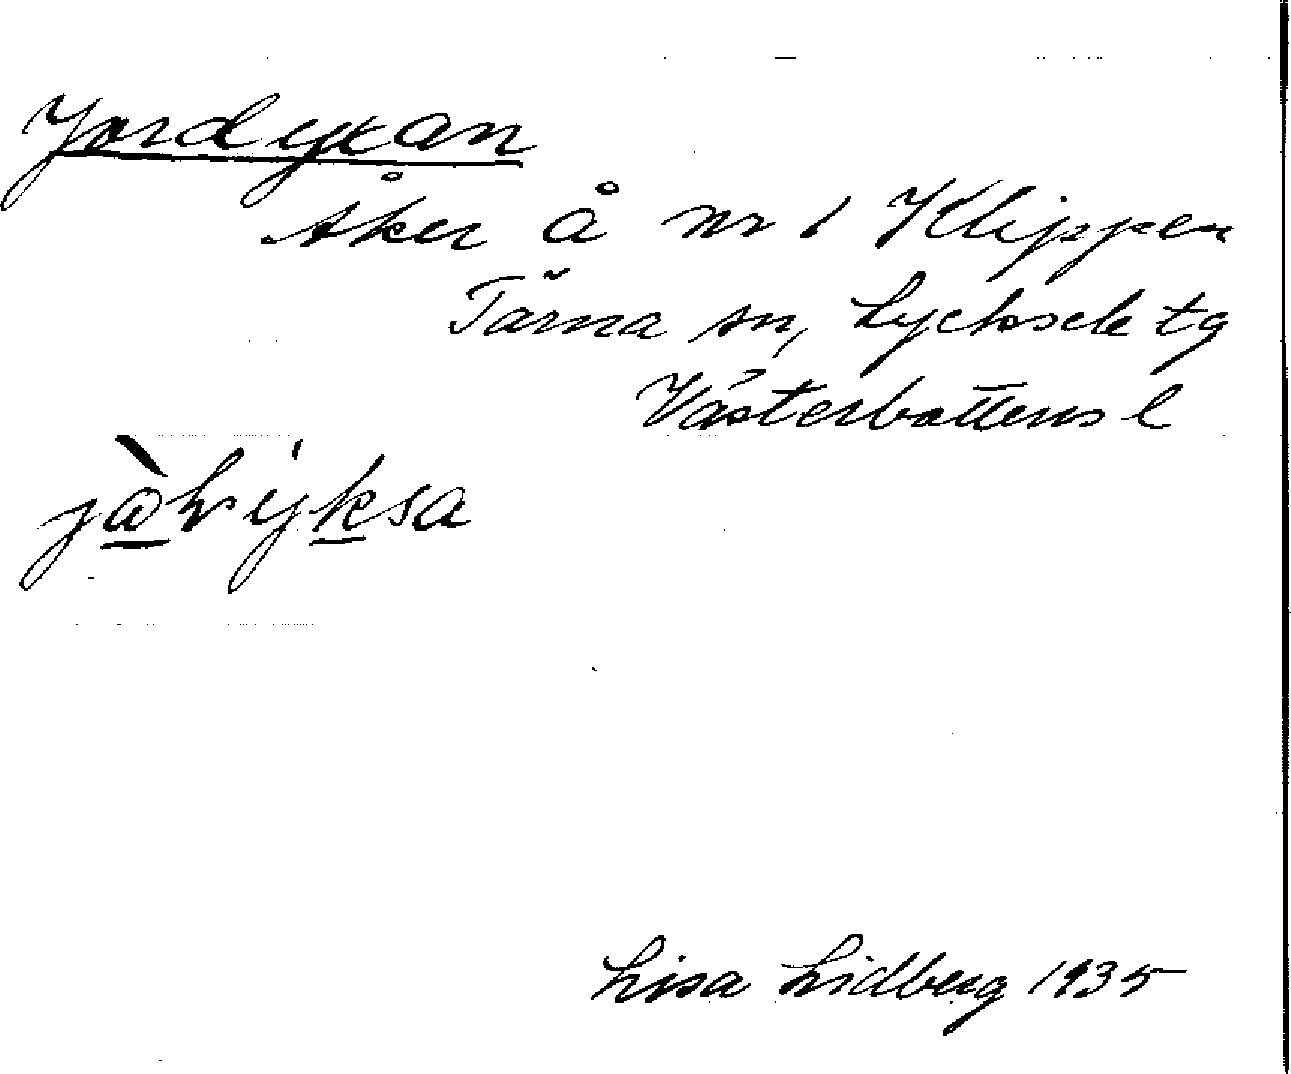 Jordyxan
Åker å nr 1 Klippen
Tärna sn, Lycksele tg
Västerbottens l
Lisa Lidberg 1935